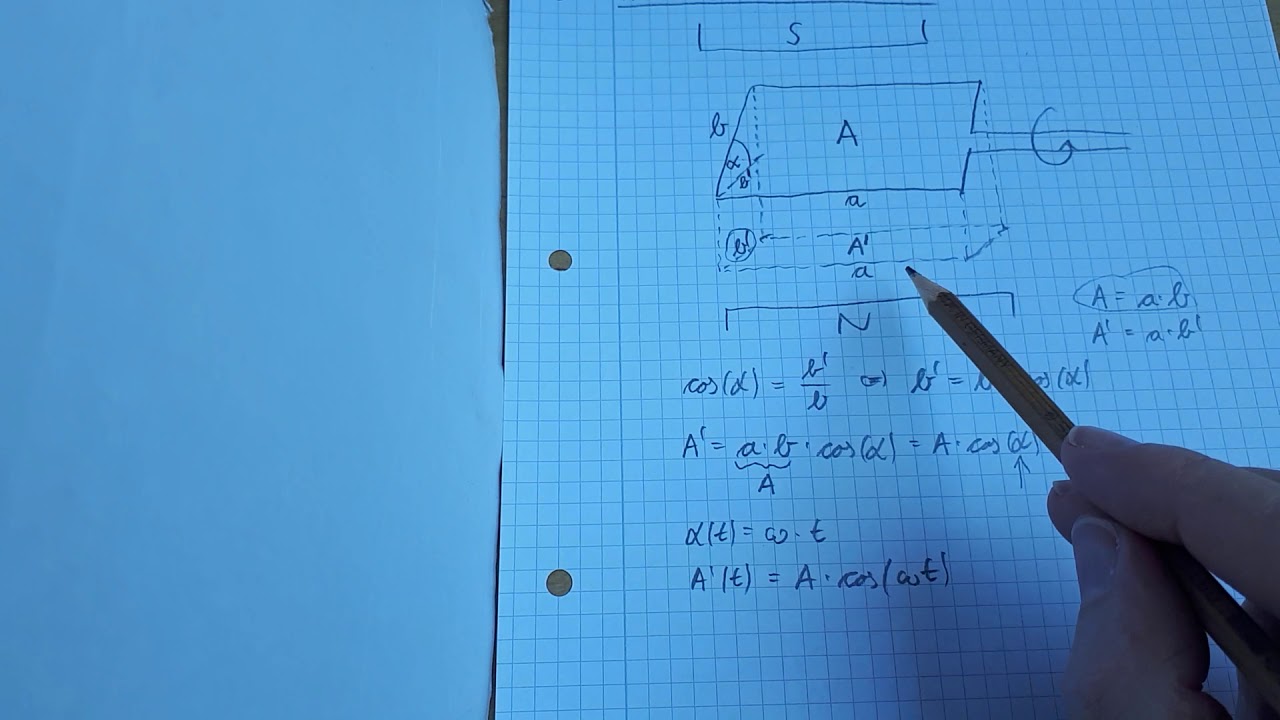 S
b
A
α
b'
a
b'
A'
a
A = a·b
N
A' = a·b'
cos(α) = b'/b ⇔ b' = b cos(α)
A' = a·b·cos(α) = A·cos(α)
A
↑
α(t) = ω·t
A'(t) = A·cos(ωt)